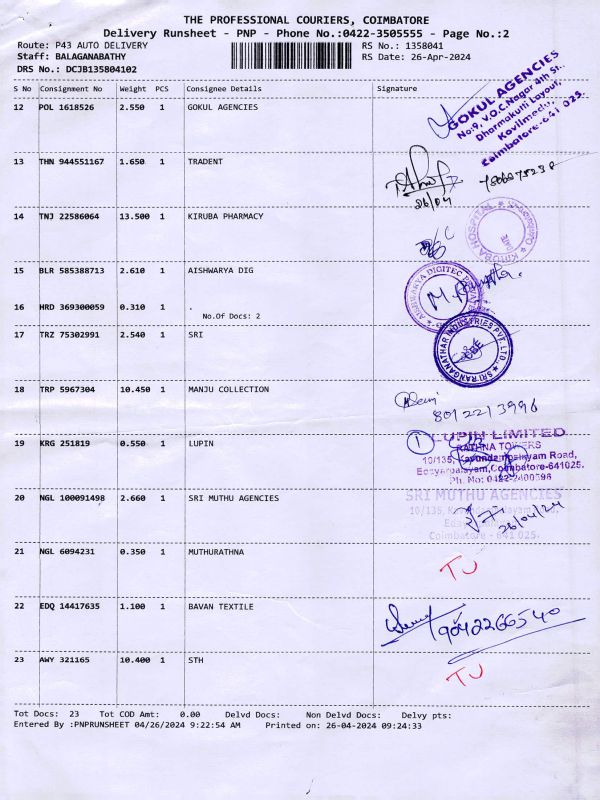 THE PROFESSIONAL COURIERS, COIMBATORE
Delivery Runsheet - PNP - Phone No.:0422-3505555 - Page No.:2
Route: P43 AUTO DELIVERY RS No.: 1358041
Staff: BALAGANABATHY RS Date: 26-Apr-2024
DRS No.: DCJB135804102
S No Consignment No Weight PCS Consignee Details Signature
12 POL 1618526 2.550 1 GOKUL AGENCIES
GOKUL AGENCIES
No:9, V.O.C.Nagar 4th St.,
Dharmakutti Layout,
Kovilmedu,
Coimbatore-641 025.
13 THN 944551167 1.650 1 TRADENT
26/04
14 TNJ 22586064 13.500 1 KIRUBA PHARMACY
KIRUBA HOSPITAL
15 BLR 585388713 2.610 1 AISHWARYA DIG
16 HRD 369300059 0.310 1 .
No.Of Docs: 2
17 TRZ 75302991 2.540 1 SRI
SRI RANGANATHAR INDUSTRIES PVT. LTD.
18 TRP 5967304 10.450 1 MANJU COLLECTION
8012213996
19 KRG 251819 0.550 1 LUPIN
1
LUPIN LIMITED
RATHNA TOWERS
10/135, Kavundampalayam Road,
Edayarpalayam, Coimbatore-641025.
Ph. No: 0422-2400596
20 NGL 100091498 2.660 1 SRI MUTHU AGENCIES
SRI MUTHU AGENCIES
26/04/24
Coimbatore - 641 025.
21 NGL 6094231 0.350 1 MUTHURATHNA
TU
22 EDQ 14417635 1.100 1 BAVAN TEXTILE
9042266540
23 AWY 321165 10.400 1 STH
TU
Tot Docs: 23 Tot COD Amt: 0.00 Delvd Docs: Non Delvd Docs: Delvy pts:
Entered By :PNPRUNSHEET 04/26/2024 9:22:54 AM Printed on: 26-04-2024 09:24:33